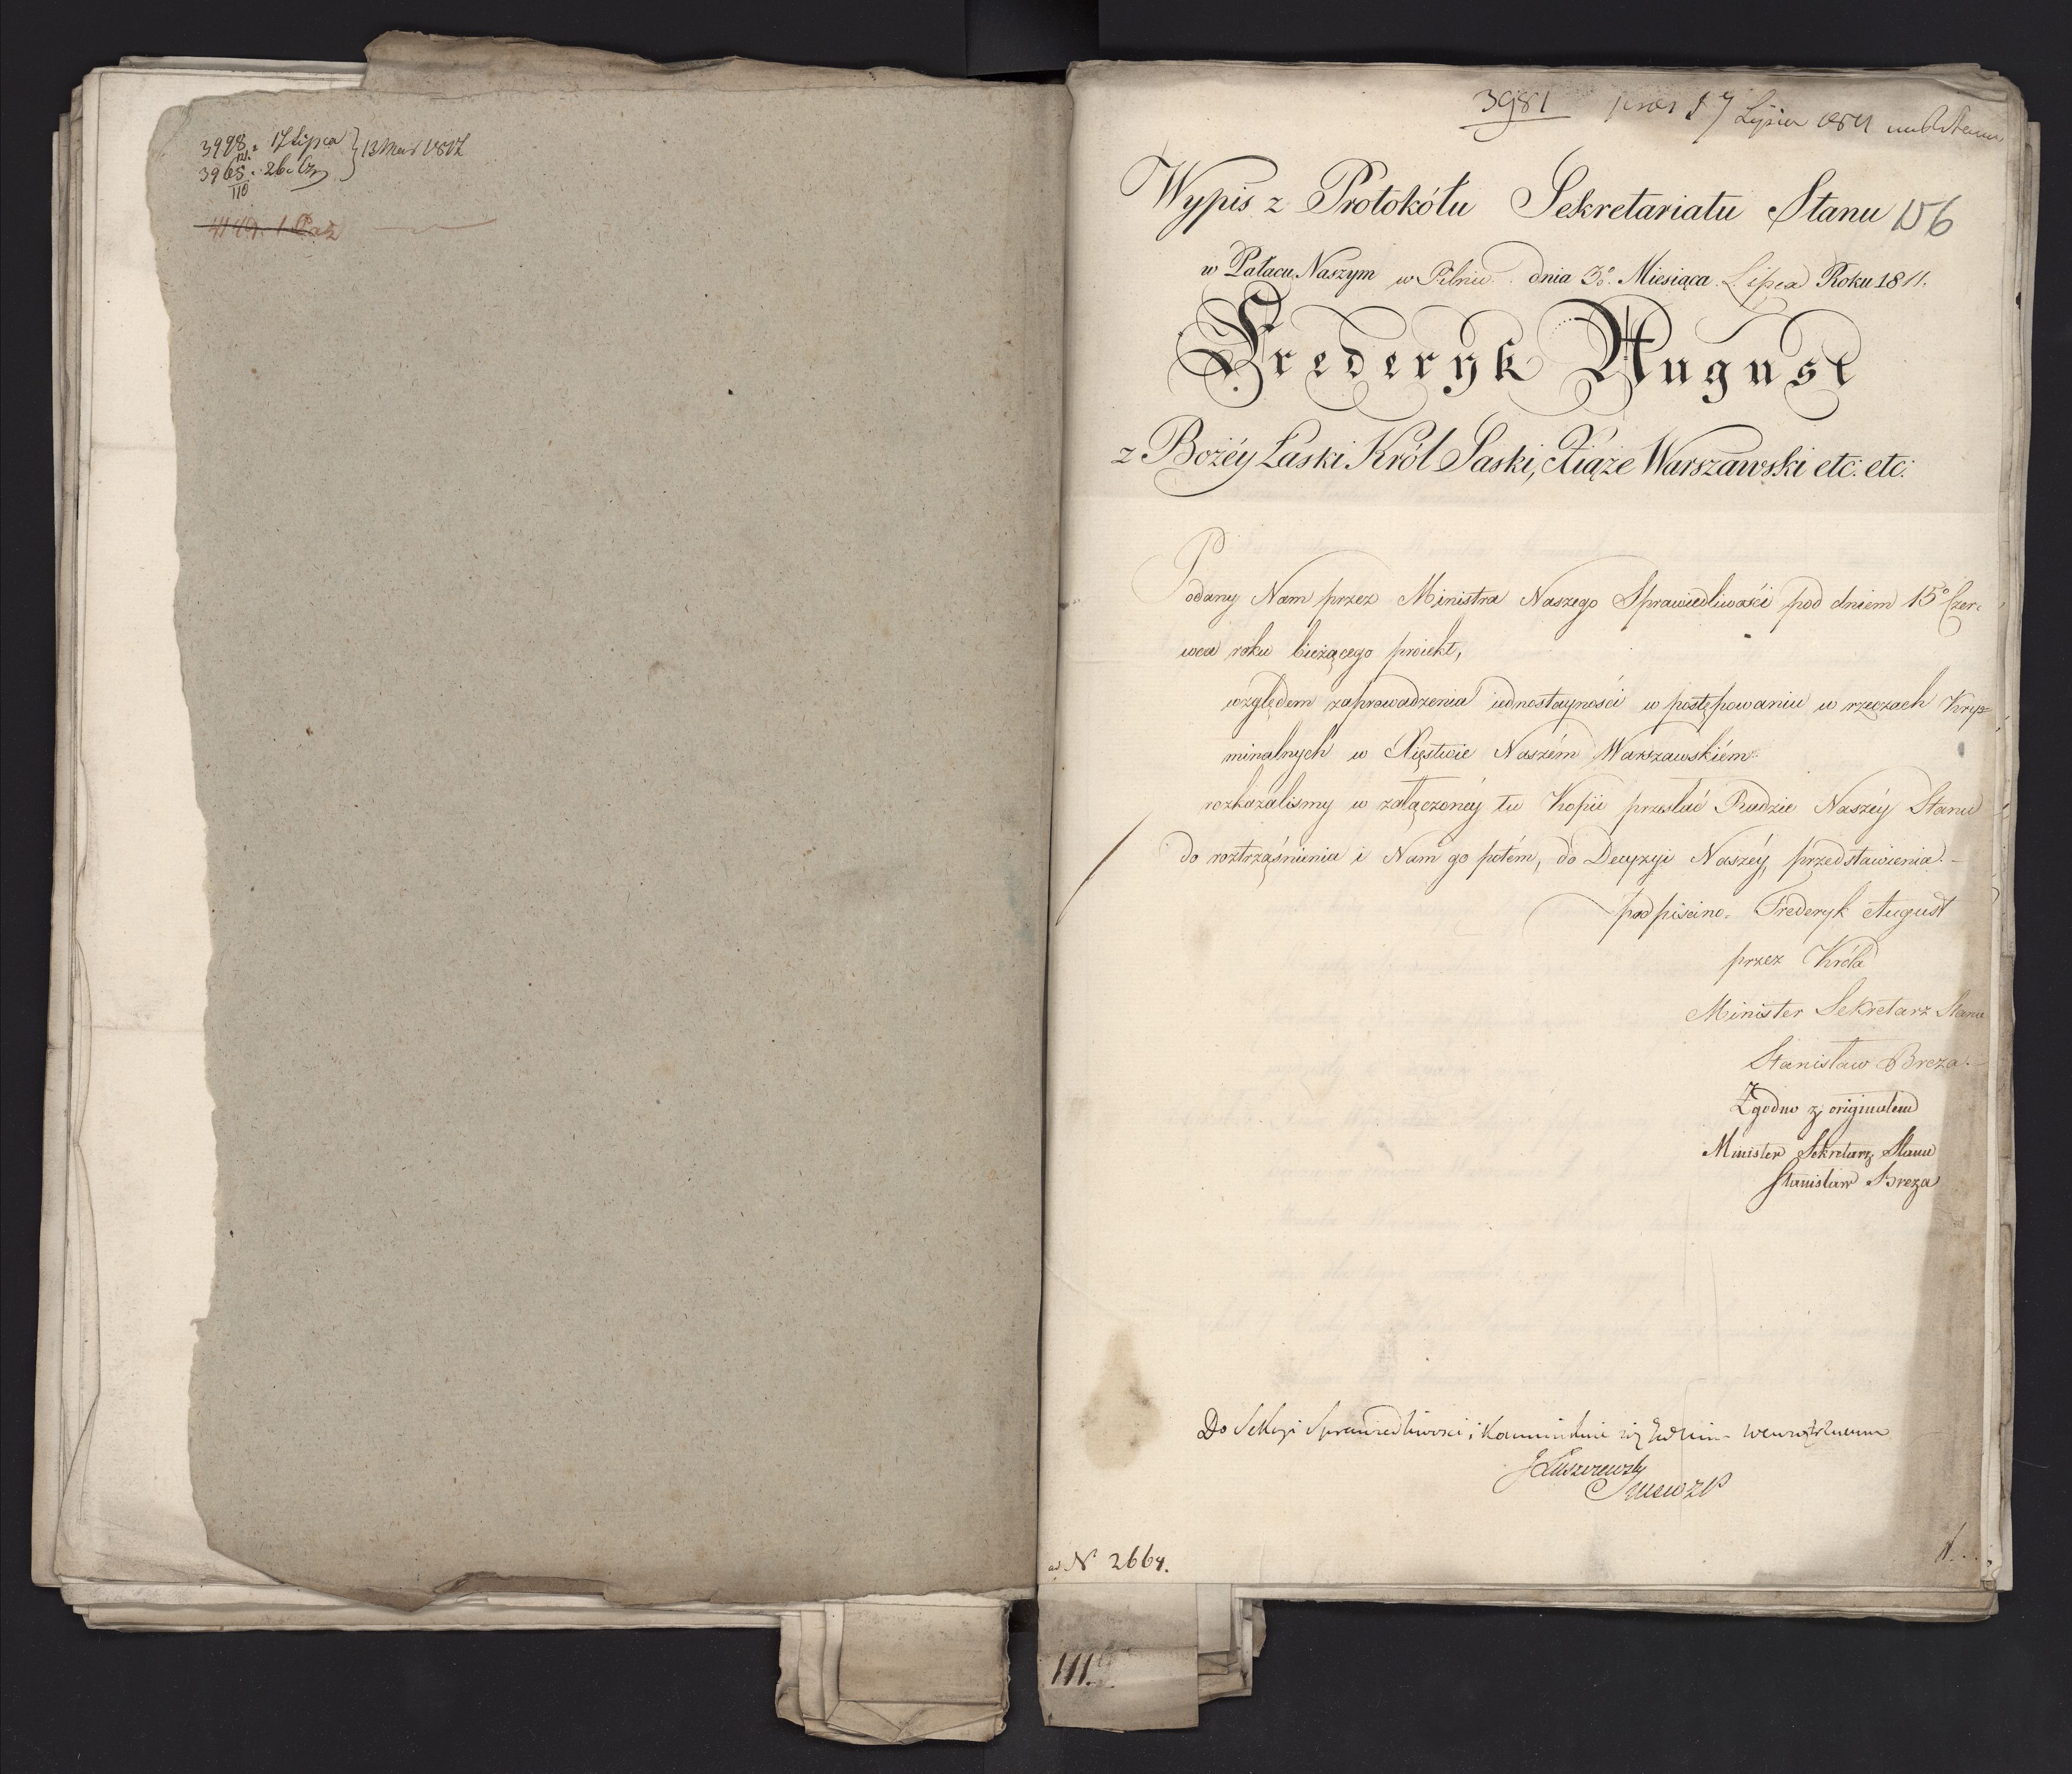 3998. 17 Lipca
3965. 26. Cz } 13 Mai 1812
110
3981 prez 17 Lipca 1811
Wypis z Protokółu Sekretariatu Stanu 156
w Pałacu Naszym w Pilnic. dnia 3o. Miesiąca Lipca Roku 1811.
Frederyk August
z Bożéy Łaski Król Saski, Xiąże Warszawski etc: etc:
Podany Nam przez Ministra Naszego Sprawiedliwości pod dniem 15o Czer-
wca roku bieżącego proiekt,
względem zaprowadzenia iednostayności w postępowaniu w rzeczach Kry-
minalnych w Xięstwie Naszém Warszawskiém
rozkazaliśmy w załączonéy tu Kopii przesłać Radzie Naszéy Stanu
do roztrząśnienia i Nam go potém, do Decyzyi Naszéy, przedstawienia. -
podpisano. Frederyk August
przez Króla
Minister Sekretarz Stanu
Stanisław Breza. -
Zgodno z originałem
Minister Sekretarz Stanu
Stanisław Breza
Do Sekcyi Sprawiedliwości i
JŁuszczewsky
ad No 2664.
111.